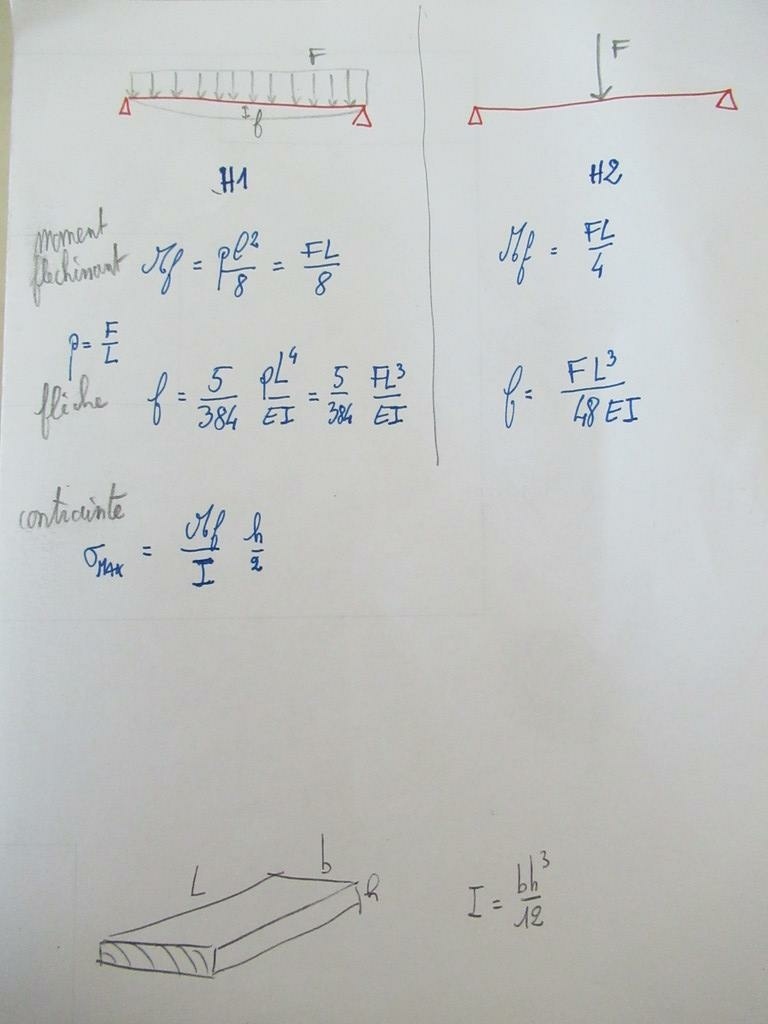 F
f
H1
moment
fléchissant
Mf = pl²/8 = FL/8
p = F/L
flèche
f = 5/384 pL⁴/EI = 5/384 FL³/EI
F
H2
Mf = FL/4
f = FL³/48EI
contrainte
σMAX = Mf/I h/2
L
b
h
I = bh³/12